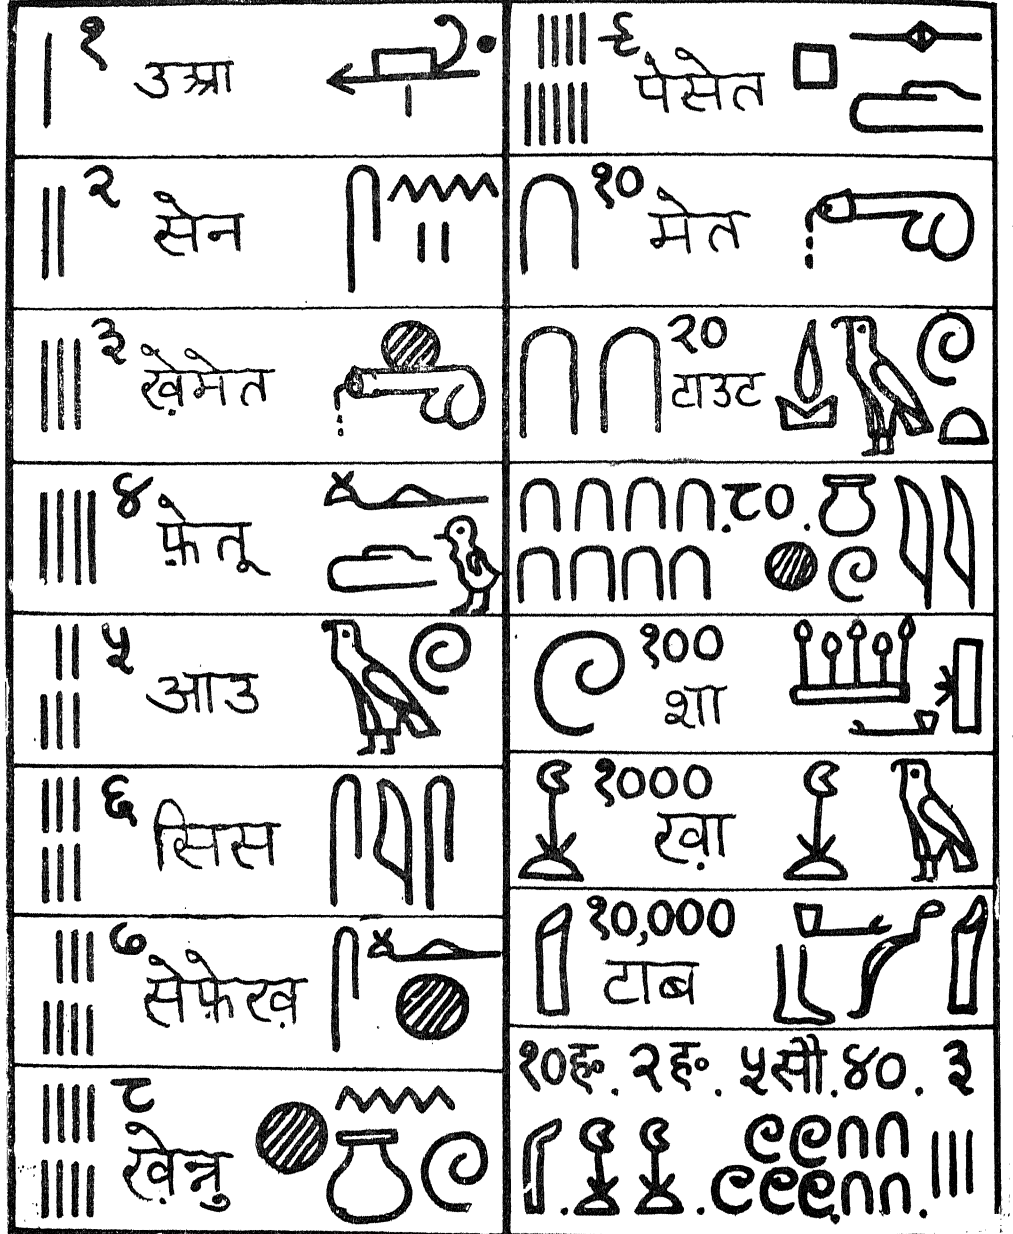 १ उआ
२ सेन
३ ख़ेमेत
४ फ़ेतू
५ आउ
६ सिस
७ सेफ़ेख़
८ ख़ेन्नु
९ पेसेत
१० मेत
२० टाउट
८०
१०० शा
१००० ख़ा
१०,००० टाब
१०ह. २ह. ५सौ. ४०. ३